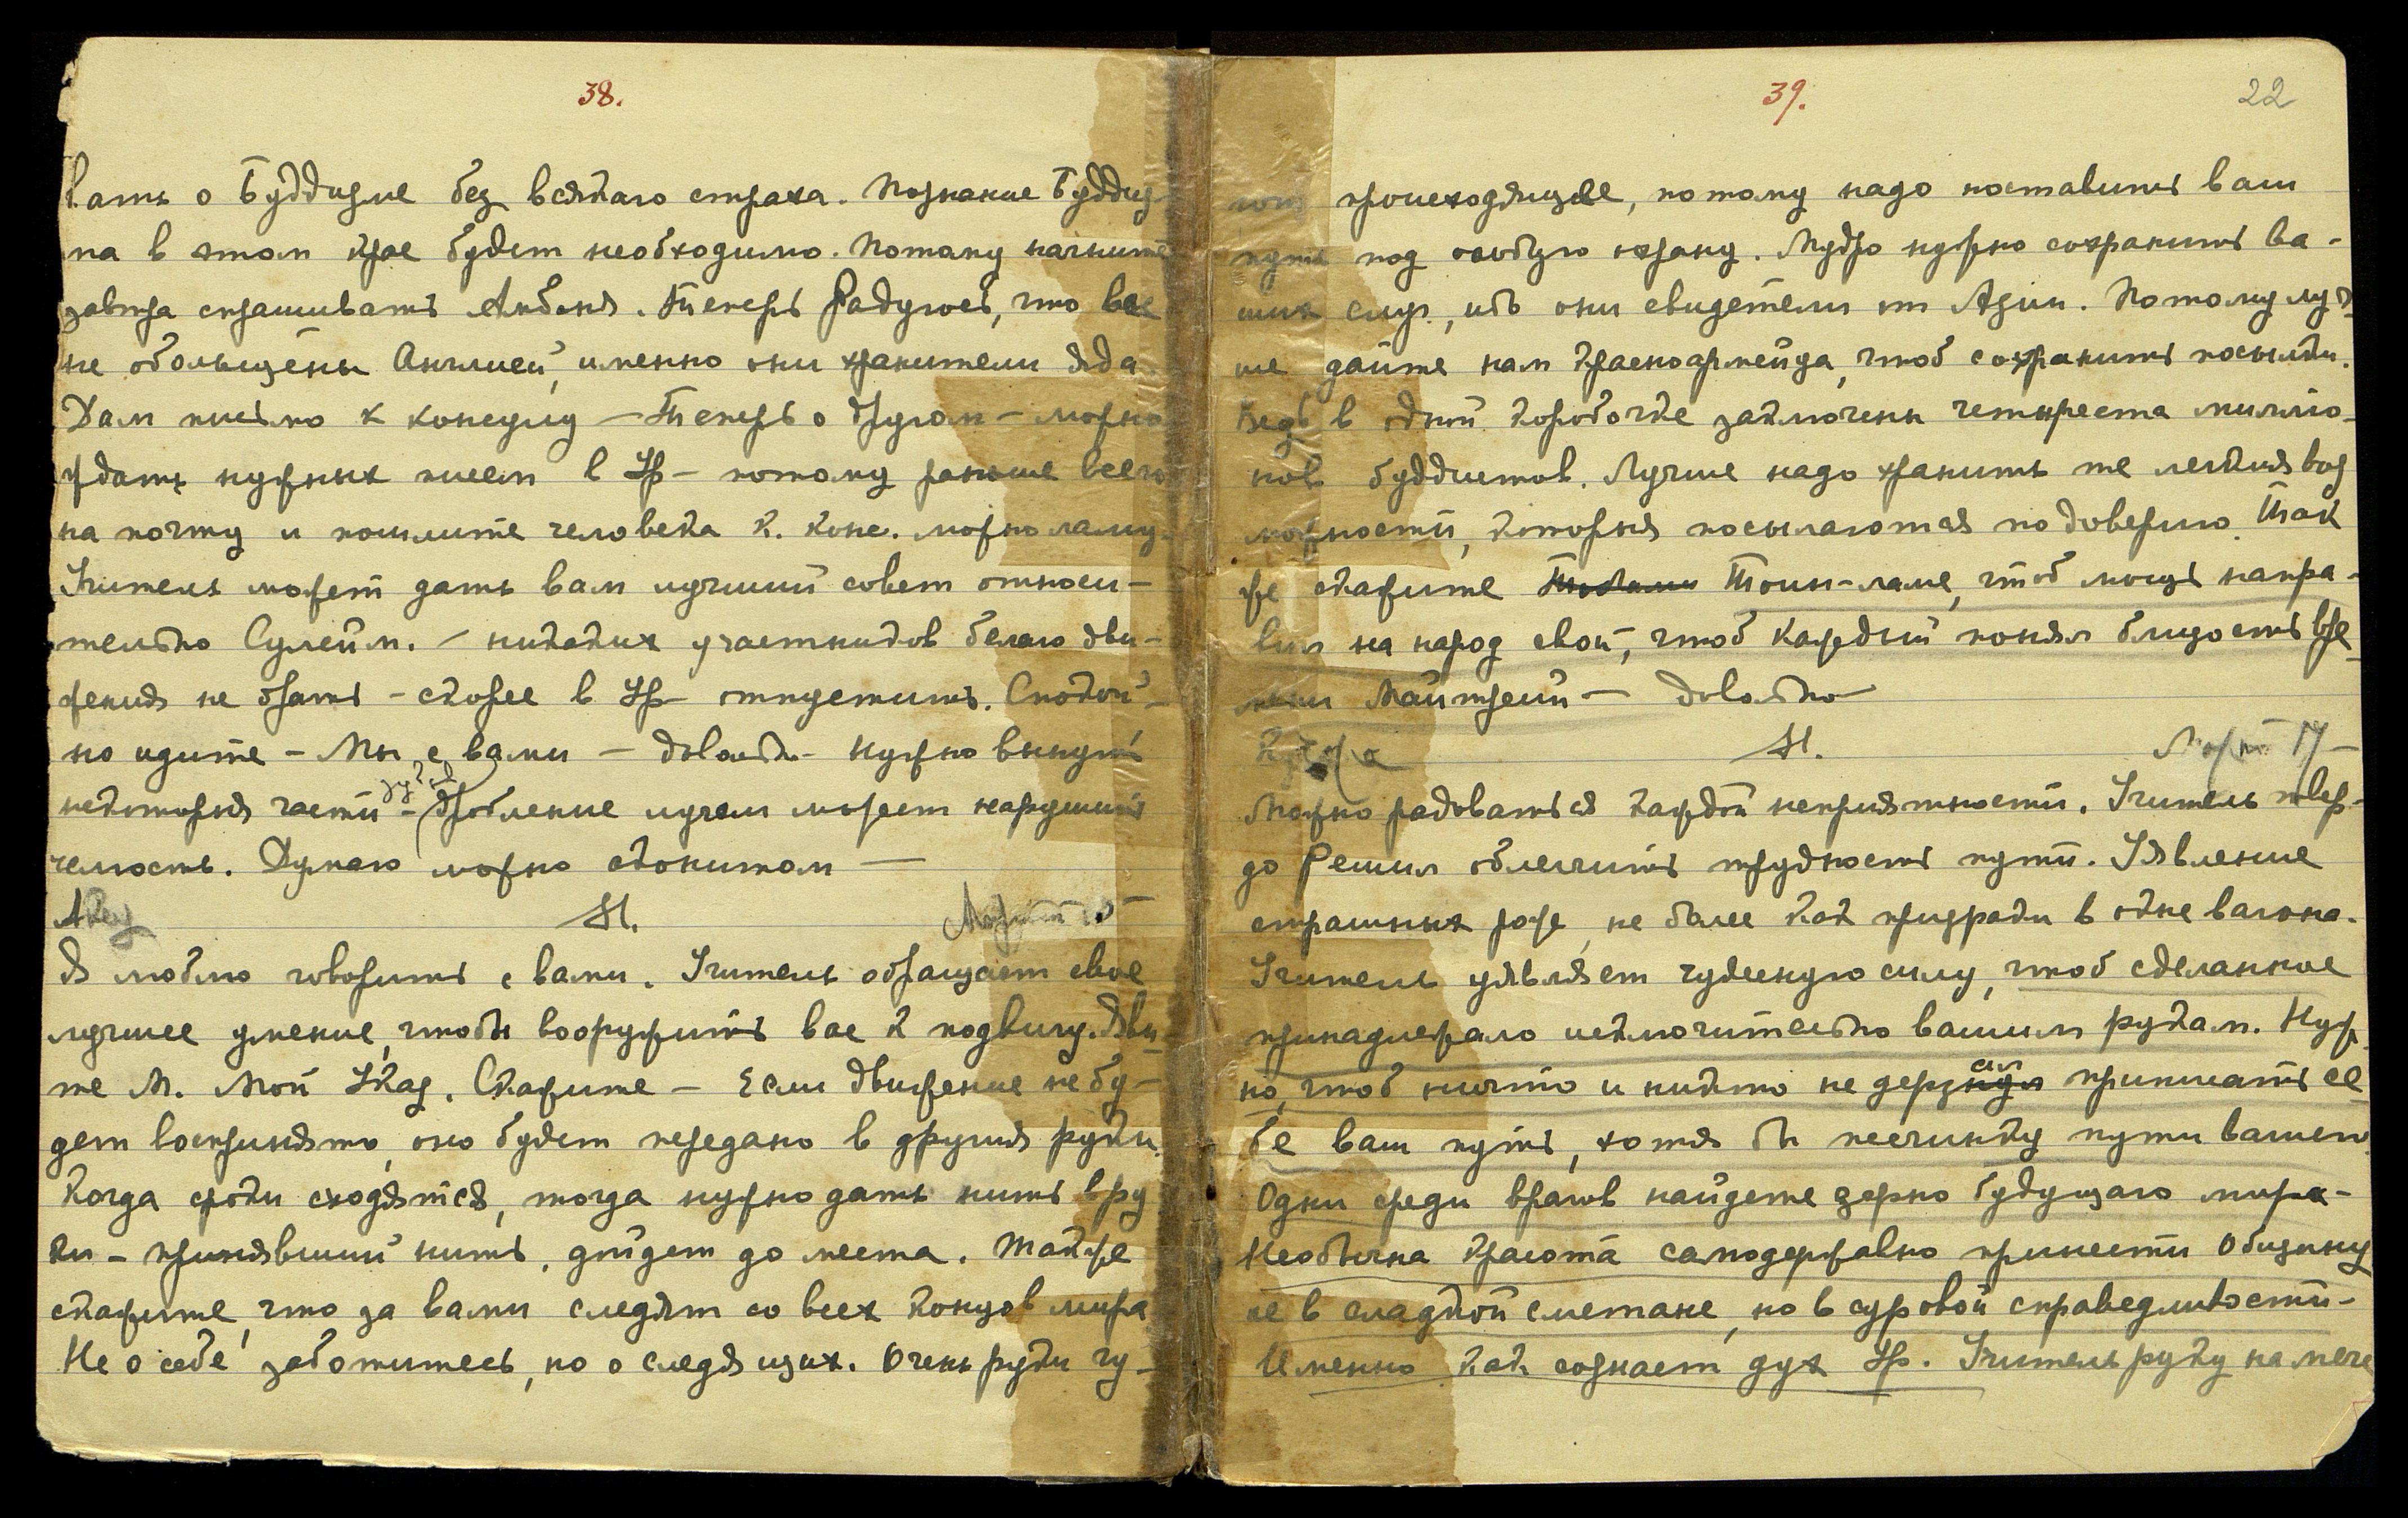 38.
вать о Буддизме без всякаго страха. Познание Буддиз-
ма в этом крае будет необходимо. Потому начните
завтра спрашивать Аябаня. Теперь Радуюсь, что все
не обольщены Англией, именно они хранители яда
Дам письмо к консулу — Теперь о другом — можно
ждать нужных писем в Ур — потому раньше всего
на почту и пошлите человека к. конс. можно ламу.
Учитель может дать вам лучший совет относи-
тельно Сулейм. — никаких участников белаго дви-
жения не брать — скорее в Ур отпустить. Спокой-
но идите — Мы с вами — довольно — нужно вынуть
некоторыя части — дробление лучам может нарушить
целость. Думаю можно
Н.
Я люблю говорить с вами. Учитель обращает свое
лучшее умение, чтобы вооружить вас к подвигу. Яви-
те М. Мой Указ. Скажите — Если движение не бу-
дет воспринято, оно будет передано в другия руки.
Когда сроки сходятся, тогда нужно дать нить в ру
ки — принявший нить, дойдет до места. Также
скажите, что за вами следят со всех концов мира
Не о себе заботитесь, но о следящих. Очень руки чу-
39.
22
происходящее, потому надо поставить ваш
путь под особую охрану. Мудро нужно сохранить ва-
ших слуг, ибо они свидетели от Азии. Потому луч-
ше дайте нам Красноармейца, чтоб сохранить посылки.
Ведь в одной коробочке заключены четыреста миллио-
нов буддистов. Лучше надо хранить те легкия воз
можности, которыя посылаются по доверию. Так
же скажите Тоин-ламе, чтоб мощь напра-
вил на народ свой, чтоб каждый понял близость вре
мени Майтрейи — довольно
Н. Март 17 —
Можно радоваться каждой неприятности. Учитель твер-
до Решил облегчить трудность пути. Уявление
страшных рож, не более как призраки в окне вагона.
Учитель уявляет чудесную силу, чтоб сделанное
принадлежало исключительно вашим рукам. Нуж
но, чтоб ничто и никто не дерзнул приписать се
бе ваш путь, хотя бы песчинку пути вашего.
Одни среди врагов найдете зерно будущаго мира —
Необычна красота самодержавно принести Общину
не в сладкой сметане, но в суровой справедливости —
Именно как сознает дух Ур. Учитель руку на мече